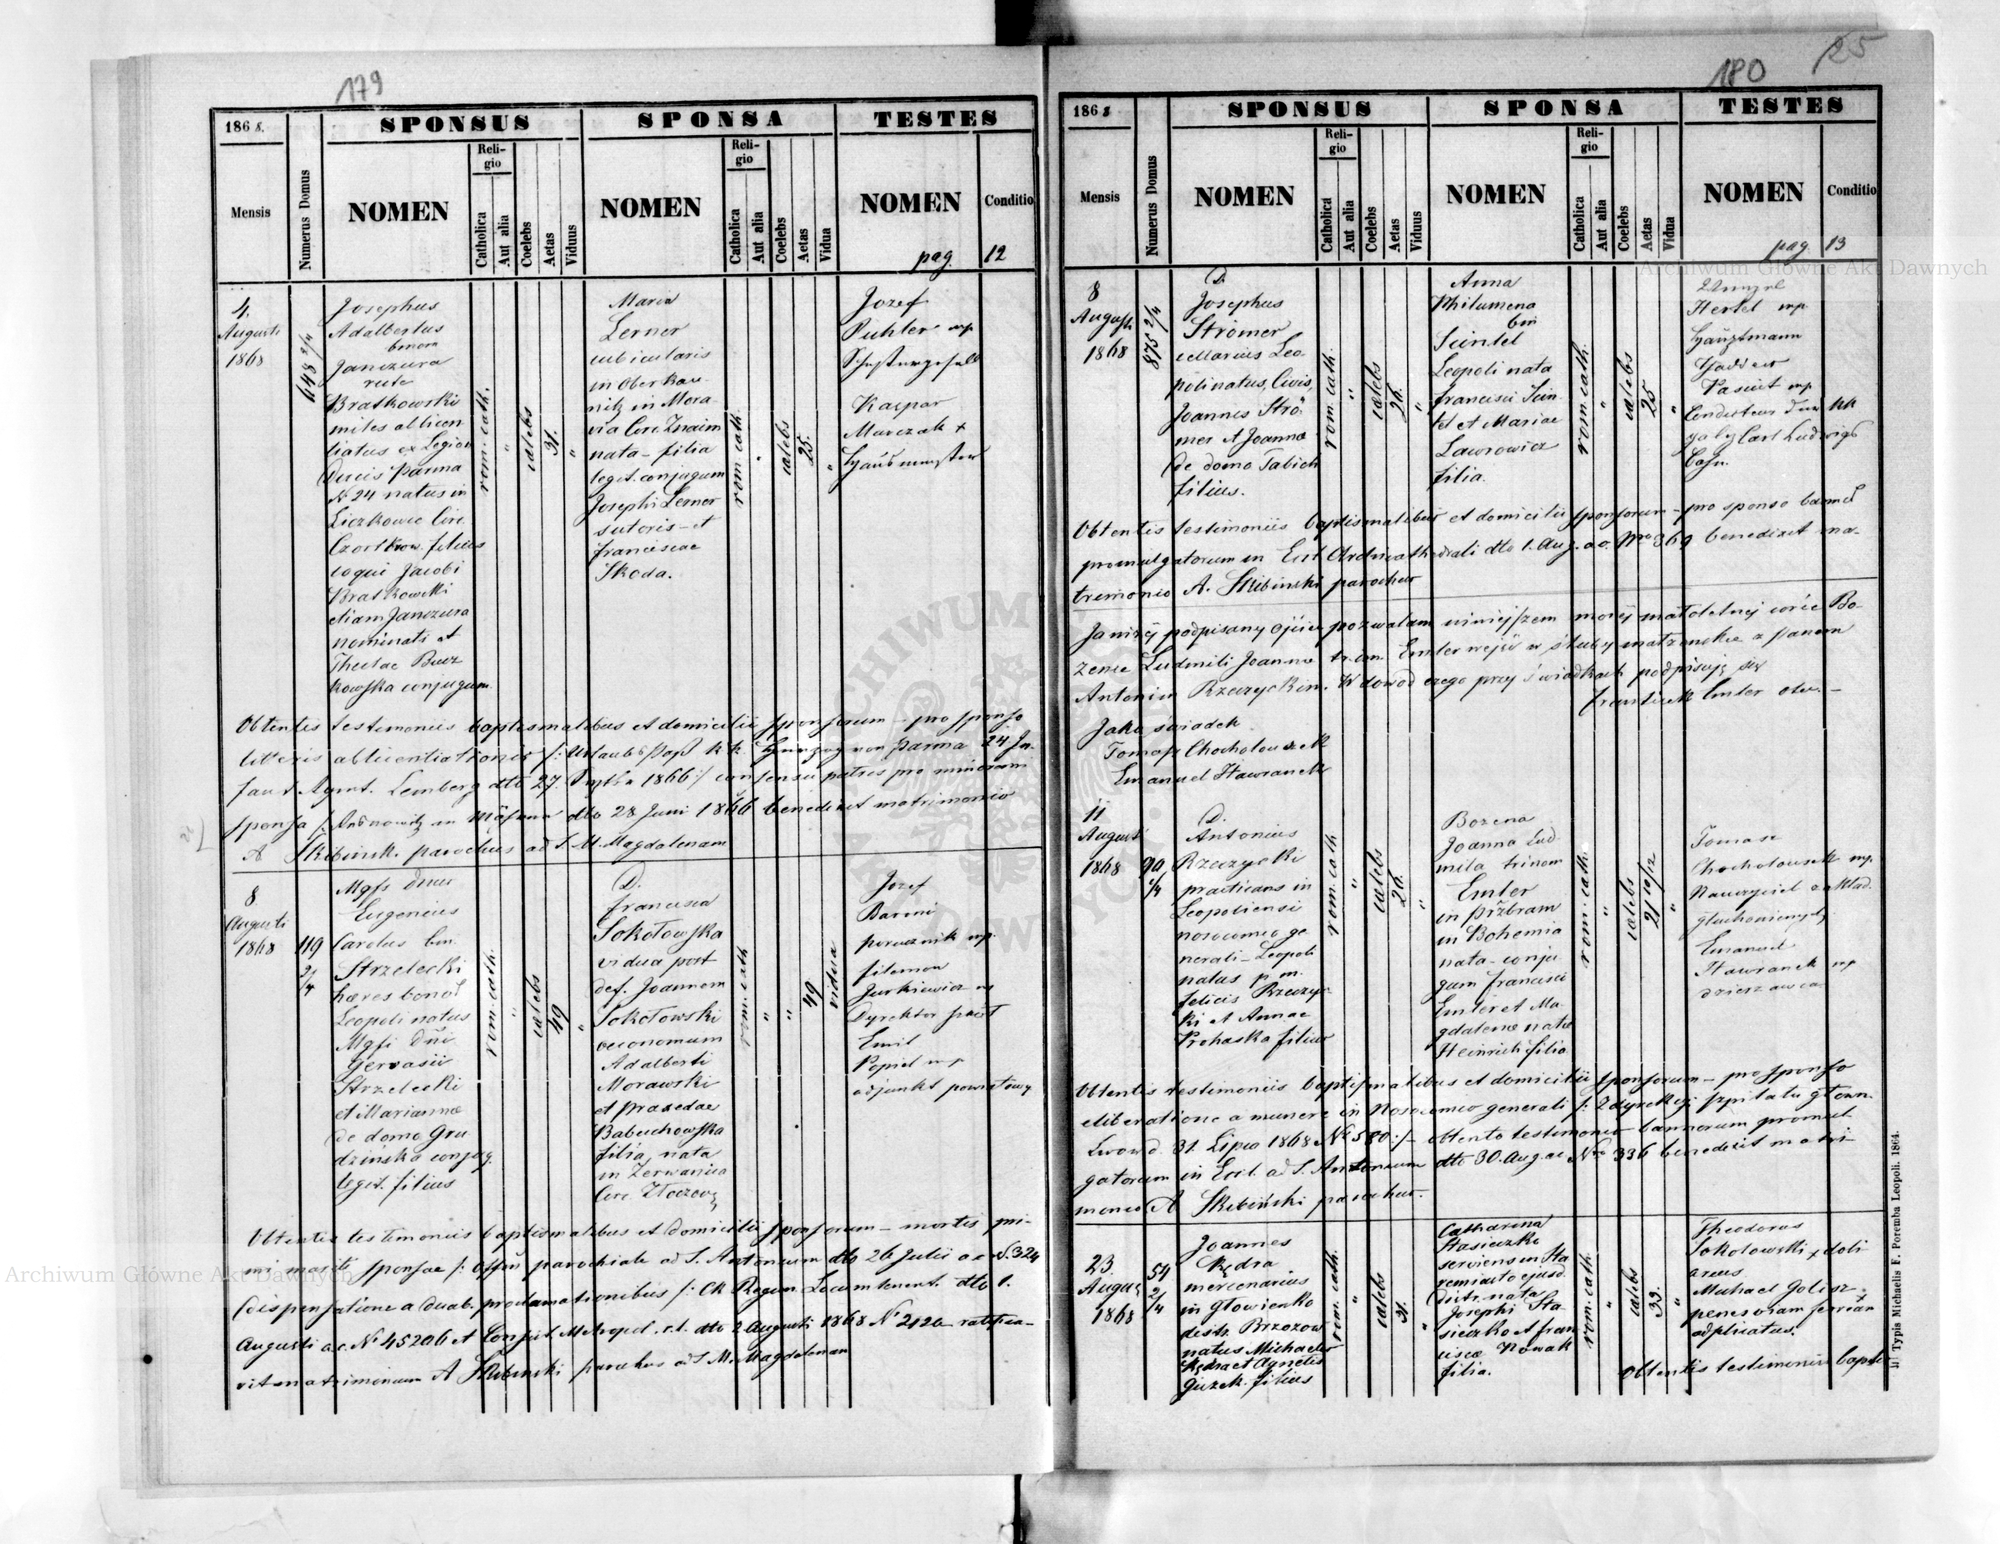 179
186 8.
SPONSUS
SPONSA
TESTES
Mensis
Numerus Domus
NOMEN
Reli-
gio
Catholica
Aut alia
Coelebs
Aetas
Viduus
NOMEN
Reli-
gio
Catholica
Aut alia
Coelebs
Aetas
Vidua
NOMEN
Conditio
pag. 12
4.
Augusti
1868
648 2/4
Josephus
Adalbertus
binom
Janczura
recte
Bratkowski
miles ablicen
tiatus ex Legion
Ducis Parma
N. 24 natus in
Liczkowce Circ.
Czortkow. filius
coqui Jacobi
Bratkowski
etiam Janczura
nominati et
Theclae Bucz
kowska conjugum.
rom. cath.
"
caelebs
31.
"
Maria
Lerner
cubicularis
in Oberkau-
nitz in Mora-
via Circ. Znaim
nata - filia
legit. conjugum
Josephi Lerner
sutoris - et
Franciscae
Skoda.
rom. cath.
"
caelebs
25.
"
Jozef
Puhler mp
Schustergesell
Kaspar
Marczak +
Hausmeister
Obtentis testimoniis baptismalibus et domicilii sponsorum - pro sponso
litteris ablicentiationis /: Urlaubs Pass k.k. Herzog von Parma 24 In-
fant. Rgmt. Lemberg dto 27. 1866 :/ consensu patris pro minorenni
sponsa in Mähren dto 28 Juni 1866 benedixit matrimonio
A Skibinski parochus ad S. M. Magdalenam
8
Augusti
1868
119
2/4
Mgfs dnus
Eugenius
Carolus bin.
Strzelecki
haeres bonor.
Leopoli natus
Mgfi Dni
Gervasii
Strzelecki
et Mariannae
de domo Gru
dzinska conjug.
legit. filius
rom. cath.
"
caelebs
49
"
D.
Francisca
Sokołowska
vidua post
def. Joannem
Sokołowski
oeconomum
Adalberti
Morawski
et Praxedae
Babuchowska
filia, nata
in Zerwanica
Circ. Złoczow.
rom. cath
"
"
49
vidua
Jozef
Baroni
porucznik mp.
Filemon
Jurkiewicz mp
Dyrektor
Emil
Popiel mp
adjunkt powiatowy
Obtentis testimoniis baptismalibus et domicilii sponsorum - mortis pri-
mi mariti sponsae /: Offiii parochiale ad S. Antonium dto 26 Julii a c N. 324
dispensatione a duab. proclamationibus /: CK Regim. Locumtenent. dto 1.
Augusti a.c. N. 45206 et Consist. Metropol. r.l. dto 2 Augusti 1868 N. 2126 ratifica-
vit matrimonium A Skibinski parochus ad S M. Magdalenam
180
25
186 8
SPONSUS
SPONSA
TESTES
Mensis
Numerus Domus
NOMEN
Reli-
gio
Catholica
Aut alia
Coelebs
Aetas
Viduus
NOMEN
Reli-
gio
Catholica
Aut alia
Coelebs
Aetas
Vidua
NOMEN
Conditio
pag. 13
8
Augusti
1868
875 2/4
D.
Josephus
Strömer
cellarius Leo-
poli natus, Civis,
Joannis Strö-
mer et Joannae
de domo Tabich
filius.
rom. cath.
"
caelebs
26.
"
Anna
Philumena
bin
Seintel
Leopoli nata
Francisci Sein-
tel et Mariae
Lawrowicz
filia.
rom. cath.
"
caelebs
25
"
Hertel mp.
Hauptmann
Pascut mp
Conducteur der kk
galiz Carl Ludwigs
Bahn.
Obtentis testimoniis baptismalibus et domicilii sponsorum - pro sponso bannor.
promulgatorum in Eccl. Archicathedrali dto 1. Aug. a c. Nro 369 benedixit ma-
trimonio A. Skibinski parochus
Ja niżej podpisany ojciec pozwalam niniejszem mojej małoletniej córce Bo-
zenie Ludmili Joannie trium. Emler wejść w śluby małżenskie z panem
Antonim Rzeczyckim. W dowod czego przy świadkach podpisuję się
Frantisek Emler otec. -
Jako swiadek
Tomasz Chocholousek
Emanuel Hawranek
11
Augusti
1868
90
1/4
D.
Antonius
Rzeczycki
practicans in
Leopoliensi
nosocomio ge
nerali - Leopoli
natus p. m.
Felicis Rzeczyc-
ki et Annae
Prohaska filius
rom. cath.
"
caelebs
26.
"
Bozena
Joanna Lud
mila trinom
Emler
in Přzbram
in Bohemia
nata - conju
gum Francisci
Emler et Ma-
gdalenae natae
Heinrich filia
rom. cath.
"
caelebs
21 10/12
"
Tomasz
Chocholousek mp.
Nauczyciel zakład.
głuchoniemych
Emanuel
Hawranek mp
dzierzawca
Obtentis testimoniis baptismalibus et domicilii sponsorum - pro sponso
eliberatione a munere in Nosocomio generali /: Z dyrekcji szpitalu głown.
Lwow d. 31. Lipca 1868 N. 580 :/ - obtento testimonio bannorum promul
gatorum in Eccl. ad S. Antonium dto 30. Aug. ac. Nro 336 benedixit matri
monio A Skibiński parochus.
23
Augus.
1868
54
2/4
Joannes
Kędra
mercenarius
in Głowienko
distr. Brzozow
natus Michaelis
Kędra et Agnetis
Guzek. filius
rom. cath.
"
caelebs
31.
"
Catharina
Stasieczko
serviens in Sta
remiasto ejusd.
distr. nata
Josephi Sta-
sieczko et Fran
ciscae Nowak
filia.
rom. cath.
"
caelebs
33.
"
Theodorus
Sokołowski + doli
arius
Michael Golisz +
penes viam ferream
adplicatus.
Obtentis testimoniis baptis
Typis Michaelis F. Poremba Leopoli. 1864.
ARCHIWUM GŁÓWNE AKT DAWNYCH
Archiwum Główne Akt Dawnych
Archiwum Główne Akt Dawnych